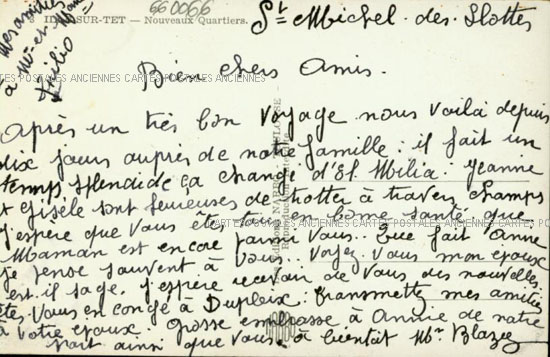 660066
ILLE-SUR-TET — Nouveaux Quartiers.
St Michel. des. Llottes
Mes amitiés
à Mr et Mme
Emilio
Bien chers Amis.
CARTES POSTALES ANCIENNES CARTES POSTALES ANCIENNES CARTES POSTALES ANCIENNES
Après un très bon voyage nous voilà depuis
dix jours auprès de notre famille : il fait un
temps splendide ça change d'El. Milia : Jeanine
et Gisèle sont heureuses de trotter à travers champs
J'espère que vous êtes tous en bonne santé que
Maman est encore parmi vous.. Que fait Anne
je pense souvent à vous.. Voyez. Vous mon époux
est. il sage. J'espère recevoir de vous des nouvelles.
êtes vous en congé à Dupleix : transmettez mes amitiés
à votre époux. Grosse embrasse à Annie de notre
part ainsi que vous. à bientôt Mme Blazy